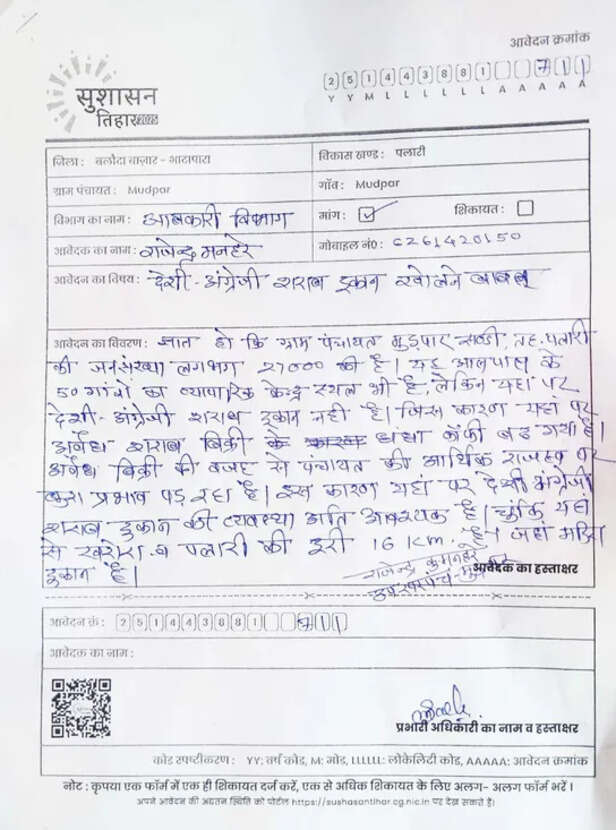 आवेदन क्रमांक
सुशासन
तिहार 2025
2 5 1 4 4 3 8 8 1 7 1 1
Y Y M L L L L L L A A A A A
जिला : बलौदा बाज़ार - भाटापारा
विकास खण्ड : पलारी
ग्राम पंचायत : Mudpar
गाँव : Mudpar
विभाग का नाम : आबकारी विभाग
मांग : ✓ शिकायत :
आवेदक का नाम : राजेन्द्र मनहरे
मोबाइल नं0 : 6261420150
आवेदन का विषय : देशी - अंग्रेजी शराब दुकान खोलने बाबत्
आवेदन का विवरण : ज्ञात हो कि ग्राम पंचायत मुड़पार तह. पलारी
की जनसंख्या लगभग की है। यह आसपास के
50 गांवों का व्यापारिक केन्द्र स्थल भी है, लेकिन यहां पर
देशी - अंग्रेजी शराब दुकान नही है। जिस कारण यहां पर
अवैध शराब बिक्री धंधा बढ़ गया है।
अवैध बिक्री की वजह से पंचायत की आर्थिक राजस्व पर
बुरा प्रभाव पड़ रहा है। इस कारण यहां पर देशी अंग्रेजी
शराब दुकान की व्यवस्था अति आवश्यक है। चूंकि यहां
से खरोरा व पलारी की दूरी 16 Km. है। जहां मदिरा
दुकान है।
राजेन्द्र कु मनहरे
उपसरपंच
आवेदक का हस्ताक्षर
आवेदन क्रं : 2 5 1 4 4 3 8 8 1 7 1 1
आवेदक का नाम :
प्रभारी अधिकारी का नाम व हस्ताक्षर
कोड स्पष्टीकरण : YY: वर्ष कोड, M: मोड, LLLLLL: लोकेलिटी कोड, AAAAA: आवेदन क्रमांक
नोट : कृपया एक फॉर्म में एक ही शिकायत दर्ज करें, एक से अधिक शिकायत के लिए अलग- अलग फॉर्म भरें ।
अपने आवेदन की अद्यतन स्थिति को पोर्टल https://sushasantihar.cg.nic.in पर देख सकते है।